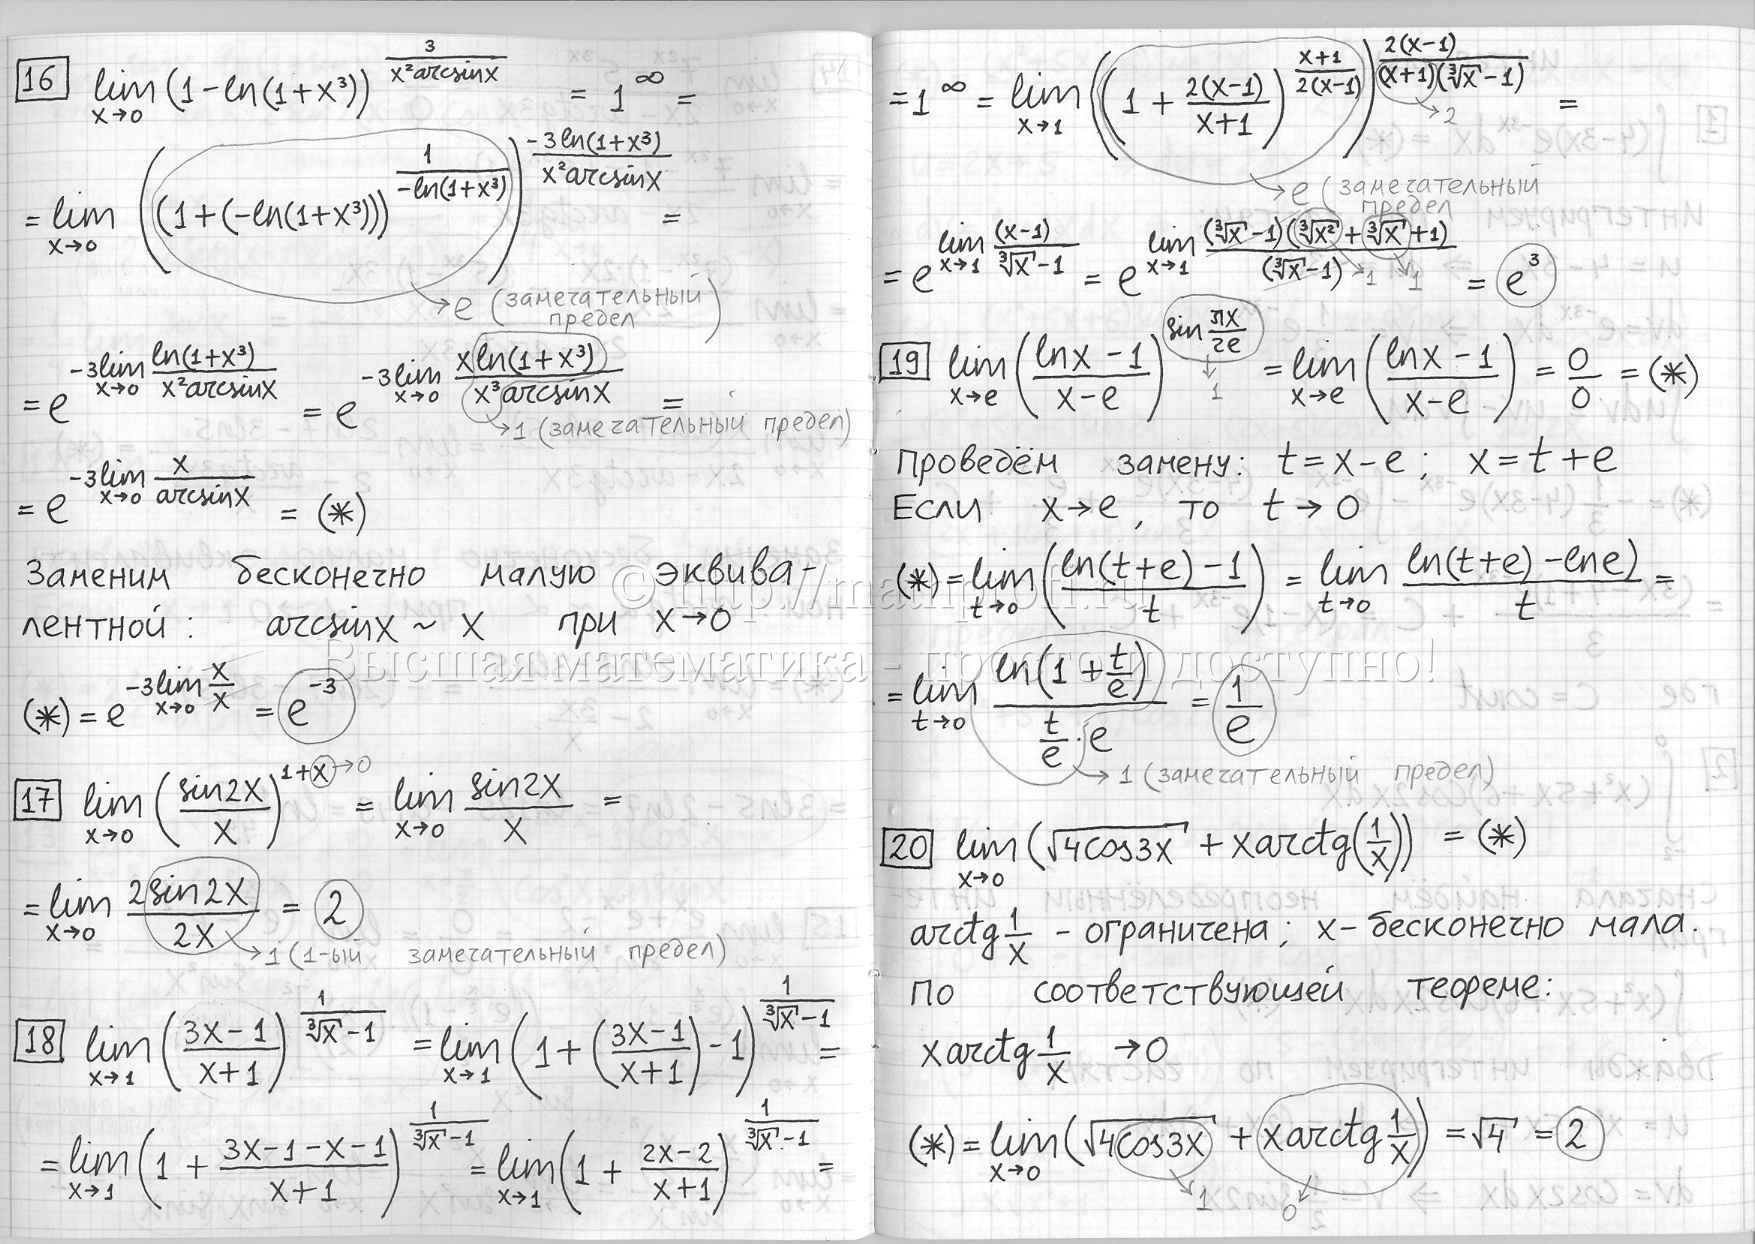 16 lim x→0 (1 - ln(1+x³))^(3/(x² arcsinx)) = 1^∞ =
= lim x→0 ((1+(-ln(1+x³)))^(1/(-ln(1+x³))))^(-3ln(1+x³)/(x² arcsinx)) =
→ e (замечательный предел)
= e^(-3 lim x→0 ln(1+x³)/(x² arcsinx)) = e^(-3 lim x→0 x ln(1+x³)/(x³ arcsinx)) =
→ 1 (замечательный предел)
= e^(-3 lim x→0 x/arcsinx) = (*)
Заменим бесконечно малую эквива-
лентной: arcsinx ~ x при x→0
(*) = e^(-3 lim x→0 x/x) = e^(-3)
17 lim x→0 (sin2x/x)^(1+x) →0 = lim x→0 sin2x/x =
= lim x→0 2sin2x/2x = 2
→ 1 (1-ый замечательный предел)
18 lim x→1 ((3x-1)/(x+1))^(1/(∛x-1)) = lim x→1 (1+((3x-1)/(x+1))-1)^(1/(∛x-1)) =
= lim x→1 (1 + (3x-1-x-1)/(x+1))^(1/(∛x-1)) = lim x→1 (1 + (2x-2)/(x+1))^(1/(∛x-1)) =
= 1^∞ = lim x→1 ((1 + 2(x-1)/(x+1))^((x+1)/(2(x-1))))^(2(x-1)/((x+1)(∛x-1))) =
→ 2
→ e (замечательный предел
= e^(lim x→1 (x-1)/(∛x-1)) = e^(lim x→1 (∛x-1)(∛x²+∛x+1)/(∛x-1)) = e³
→ 1 → 1
19 lim x→e ((lnx-1)/(x-e))^(sin πx/2e) = lim x→e ((lnx-1)/(x-e)) = 0/0 = (*)
→ 1
Проведём замену: t=x-e; x=t+e
Если x→e, то t→0
(*) = lim t→0 ((ln(t+e)-1)/t) = lim t→0 (ln(t+e)-lne)/t =
= lim t→0 ln(1+t/e)/(t/e·e) = 1/e
→ 1 (замечательный предел)
20 lim x→0 (√4cos3x + x arctg(1/x)) = (*)
arctg 1/x - ограничена; x-бесконечно мала.
По соответствующей теореме:
x arctg 1/x → 0
(*) = lim x→0 (√4cos3x + x arctg 1/x) = √4 = 2
→ 1 → 0
© http://mathprofi.ru
Высшая математика - просто и доступно!